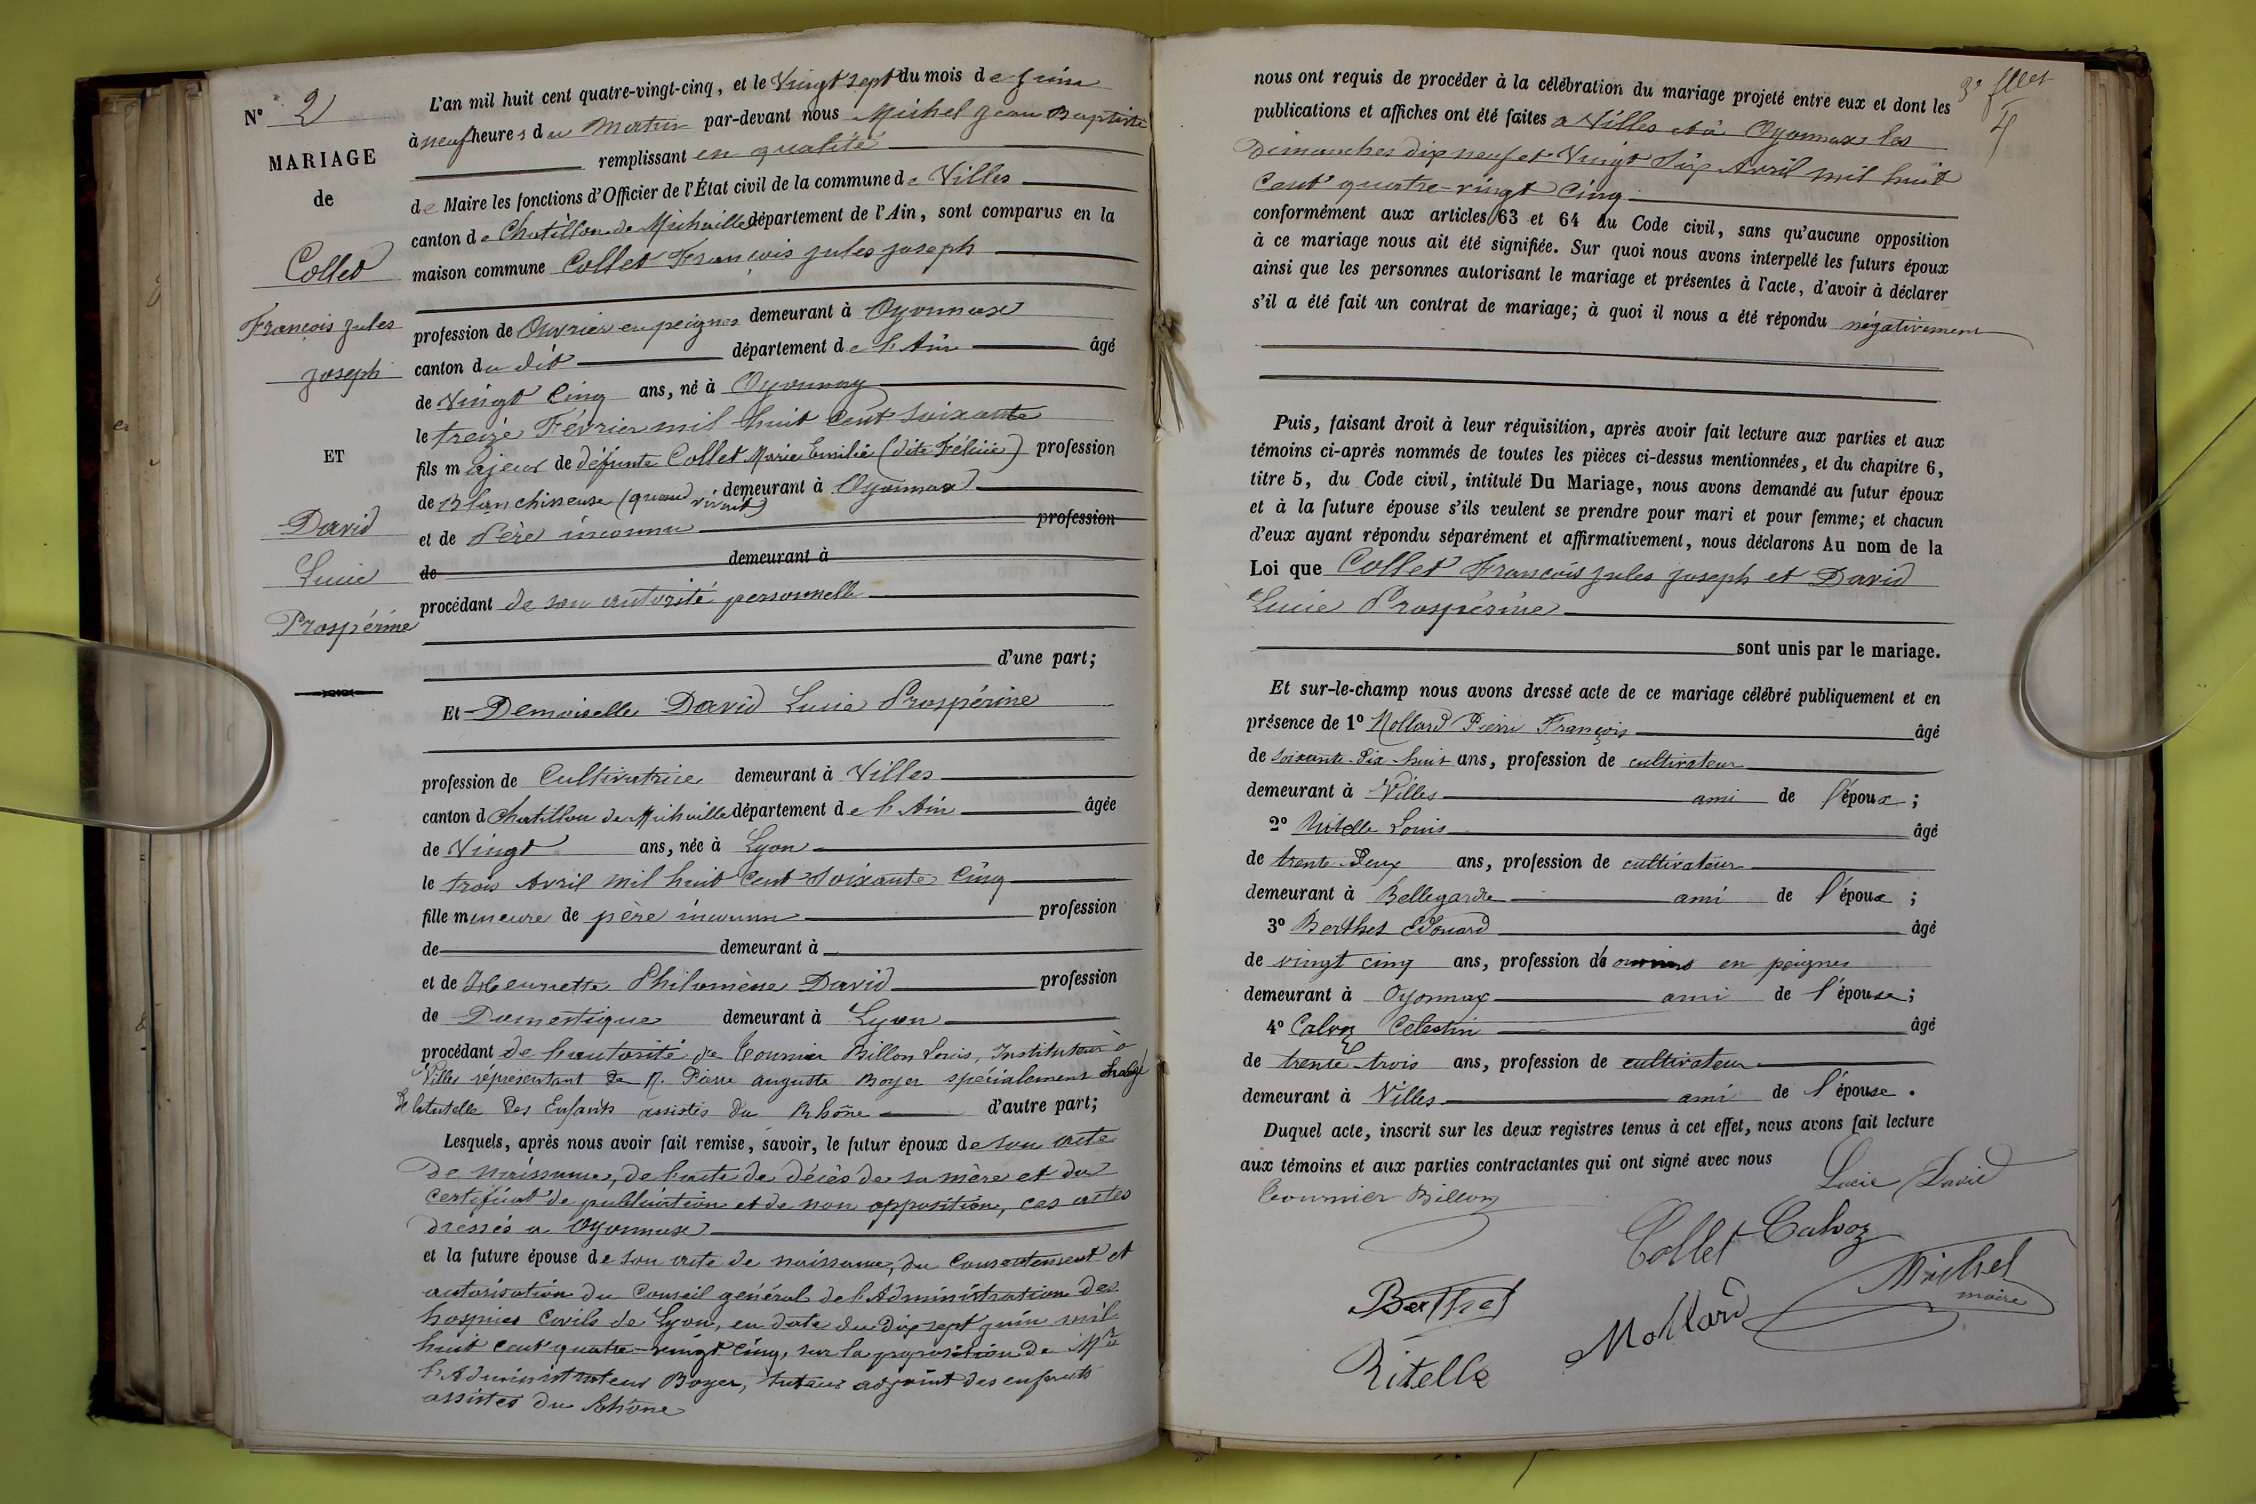 N° 2
MARIAGE
de
Collet
François Jules
Joseph
ET
David
Lucie
Prospérine
L'an mil huit cent quatre-vingt-cinq, et le Vingt sept du mois de Juin
à neuf heures du Matin par-devant nous Michel Jean Baptiste
remplissant en qualité
de Maire les fonctions d'Officier de l'État civil de la commune de Villes
canton de Chatillon de Michaille département de l'Ain, sont comparus en la
maison commune Collet François Jules Joseph
profession de Ouvrier en peignes demeurant à Oyonnax
canton du dit département de l'Ain âgé
de Vingt Cinq ans, né à Oyonnax
le treize Février mil huit Cent Soixante
fils majeur de défunte Collet Marie Emilie (dite Félicie) profession
de Blanchisseuse (quand vivait) demeurant à Oyonnax
et de Père inconnu profession
de demeurant à
procédant de son autorité personnelle
d'une part;
Et Demoiselle David Lucie Prospérine
profession de Cultivatrice demeurant à Villes
canton d Chatillon de Michaille département de l'Ain âgée
de Vingt ans, née à Lyon
le trois Avril mil huit Cent Soixante Cinq
fille mineure de père inconnu profession
de demeurant à
et de Henriette Philomène David profession
de Domestique demeurant à Lyon
procédant de l'autorité de Tournier Billon Louis, Instituteur à
Villes réprésentant de M. Pierre Auguste Boyer spécialement chargé
de la tutelle des Enfants assistés du Rhône d'autre part;
Lesquels, après nous avoir fait remise, savoir, le futur époux de son acte
de naissance, de l'acte de décès de sa mère et du
certificat de publication et de non opposition, ces actes
dressés à Oyonnax
et la future épouse de son acte de naissance, du Consentement et
autorisation du Conseil général de l'Administration des
hospices Civils de Lyon, en date du Dix sept juin mil
huit cent quatre-vingt cinq, sur la proposition de Mr
l'Administrateur Boyer, tuteur adjoint des enfants
assistés du Rhône
nous ont requis de procéder à la célébration du mariage projeté entre eux et dont les
publications et affiches ont été faites à Villes et à Oyonnax les
Dimanches dix neuf et Vingt Six Avril mil huit
Cent quatre-vingt Cinq
conformément aux articles 63 et 64 du Code civil, sans qu'aucune opposition
à ce mariage nous ait été signifiée. Sur quoi nous avons interpellé les futurs époux
ainsi que les personnes autorisant le mariage et présentes à l'acte, d'avoir à déclarer
s'il a été fait un contrat de mariage; à quoi il nous a été répondu négativement
Puis, faisant droit à leur réquisition, après avoir fait lecture aux parties et aux
témoins ci-après nommés de toutes les pièces ci-dessus mentionnées, et du chapitre 6,
titre 5, du Code civil, intitulé Du Mariage, nous avons demandé au futur époux
et à la future épouse s'ils veulent se prendre pour mari et pour femme; et chacun
d'eux ayant répondu séparément et affirmativement, nous déclarons Au nom de la
Loi que Collet François Jules Joseph et David
Lucie Prospérine
sont unis par le mariage.
Et sur-le-champ nous avons dressé acte de ce mariage célébré publiquement et en
présence de 1° Mollard Pierre François âgé
de soixante-dix-huit ans, profession de cultivateur
demeurant à Villes ami de l'époux;
2° Ritelle Louis âgé
de trente-Deux ans, profession de cultivateur
demeurant à Bellegarde ami de l'époux;
3° Berthet Edouard âgé
de vingt cinq ans, profession d'ouvriers en peignes
demeurant à Oyonnax ami de l'épouse;
4° Calvoz Celestin âgé
de trente-trois ans, profession de cultivateur
demeurant à Villes ami de l'épouse.
Duquel acte, inscrit sur les deux registres tenus à cet effet, nous avons fait lecture
aux témoins et aux parties contractantes qui ont signé avec nous
Lucie David
Tournier Billon
Collet Calvoz
Berthet
Michel
maire
Mollard
Ritelle